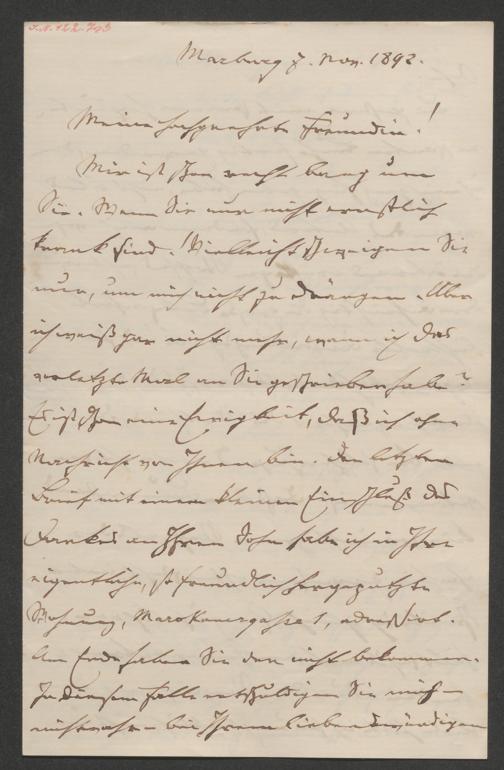 I.N. 122.743
Marburg 7. Nov. 1892.
Meine hochgeehrte Freundin!
Mir ist schon recht bang um
Sie. Wenn Sie nur nicht ernstlich
krank sind! Vielleicht schweigen Sie
nur, um mich nicht zu drängen. Aber
ich weiß gar nicht mehr, wann ich das
vorletzte Mal an Sie geschrieben habe?
Es ist schon eine Ewigkeit, daß ich ohne
Nachricht von Ihnen bin. Den letzten
Brief mit einem kleinen Einschluß des
Dankes an Ihren Sohn habe ich in Ihre
eigentliche, so freundlich hergeputzte
Wohnung, Marokanergasse 1, adressirt.
Am Ende haben Sie den nicht bekommen.
In diesem Falle entschuldigen Sie mich –
bei Ihrem liebenswürdigen